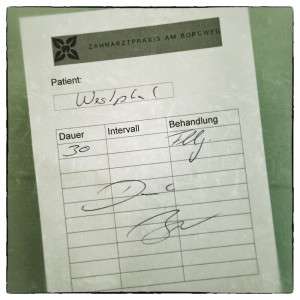 ZAHNARZTPRAXIS AM BORGWEG
Patient:
Westphal
Dauer Intervall Behandlung
30